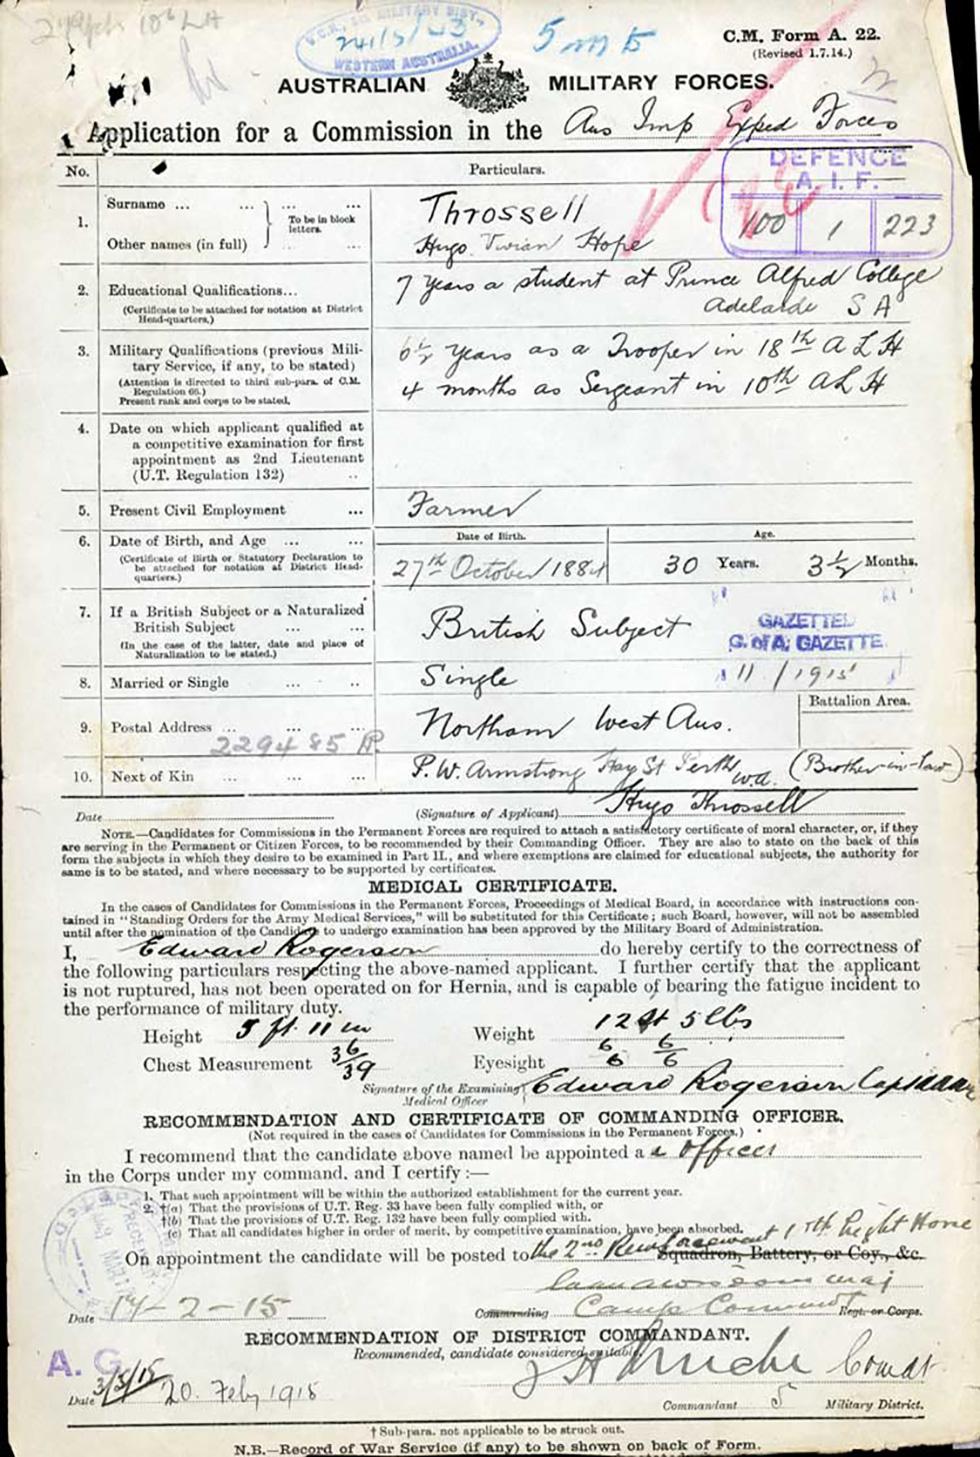 C.M. Form A. 22.
(Revised 1.7.14.)
5 M D
24/5/
WESTERN AUSTRALIA.
AUSTRALIAN MILITARY FORCES.
Application for a Commission in the Aus Imp Exped Forces
No. Particulars.
DEFENCE
A. I. F.
100 1 223
1. Surname ... ... ... ... Throssell
To be in block letters.
Other names (in full) ... Hugo Vivian Hope
2. Educational Qualifications... 7 Years a student at Prince Alfred College
(Certificate to be attached for notation at District Head-quarters.) Adelaide S A
3. Military Qualifications (previous Mili- 6½ Years as a Trooper in 18th A L H
tary Service, if any, to be stated)
(Attention is directed to third sub-para. of C.M. 4 months as Sergeant in 10th ALH
Regulation 66.)
Present rank and corps to be stated.
4. Date on which applicant qualified at
a competitive examination for first
appointment as 2nd Lieutenant
(U.T. Regulation 132) ..
5. Present Civil Employment ... Farmer
6. Date of Birth, and Age ... ... Date of Birth. Age.
(Certificate of Birth or Statutory Declaration to
be attached for notation at District Head-
quarters.)
27th October 1884 30 Years. 3½ Months.
7. If a British Subject or a Naturalized
British Subject ... ... British Subject
(In the case of the latter, date and place of
Naturalization to be stated.)
GAZETTED
C. of A. GAZETTE
11/1915
8. Married or Single ... .. Single
9. Postal Address ... ... Northam West Aus.
Battalion Area.
229485
10. Next of Kin ... ... ... P.W. Armstrong Hay St Perth W.A. (Brother-in-law)
Date (Signature of Applicant) Hugo Throssell
NOTE.—Candidates for Commissions in the Permanent Forces are required to attach a satisfactory certificate of moral character, or, if they
are serving in the Permanent or Citizen Forces, to be recommended by their Commanding Officer. They are also to state on the back of this
form the subjects in which they desire to be examined in Part II., and where exemptions are claimed for educational subjects, the authority for
same is to be stated, and where necessary to be supported by certificates.
MEDICAL CERTIFICATE.
In the cases of Candidates for Commissions in the Permanent Forces, Proceedings of Medical Board, in accordance with instructions con-
tained in "Standing Orders for the Army Medical Services," will be substituted for this Certificate; such Board, however, will not be assembled
until after the nomination of the Candidate to undergo examination has been approved by the Military Board of Administration.
I, Edward Rogerson do hereby certify to the correctness of
the following particulars respecting the above-named applicant. I further certify that the applicant
is not ruptured, has not been operated on for Hernia, and is capable of bearing the fatigue incident to
the performance of military duty.
Height 5 ft 11 in Weight 12 st 5 lbs
Chest Measurement 36/39 Eyesight 6/6 6/6
Signature of the Examining Medical Officer Edward Rogerson Capt
RECOMMENDATION AND CERTIFICATE OF COMMANDING OFFICER.
(Not required in the cases of Candidates for Commissions in the Permanent Forces.)
I recommend that the candidate above named be appointed a officer
in the Corps under my command, and I certify:—
1. That such appointment will be within the authorized establishment for the current year.
2. †(a) That the provisions of U.T. Reg. 33 have been fully complied with, or
†(b) That the provisions of U.T. Reg. 132 have been fully complied with.
(c) That all candidates higher in order of merit, by competitive examination, have been absorbed.
On appointment the candidate will be posted to the 2nd Reinforcement 10th Light Horse Squadron, Battery, or Coy., &c.
Maj
Date 14-2-15 Commanding Camp Commdt Regt. or Corps.
RECOMMENDATION OF DISTRICT COMMANDANT.
Recommended, candidate considered suitable.
A. G.
3/3/15
Date 20 Feby 1915
Comdt
Commandant 5 Military District.
† Sub-para. not applicable to be struck out.
N.B.—Record of War Service (if any) to be shown on back of Form.